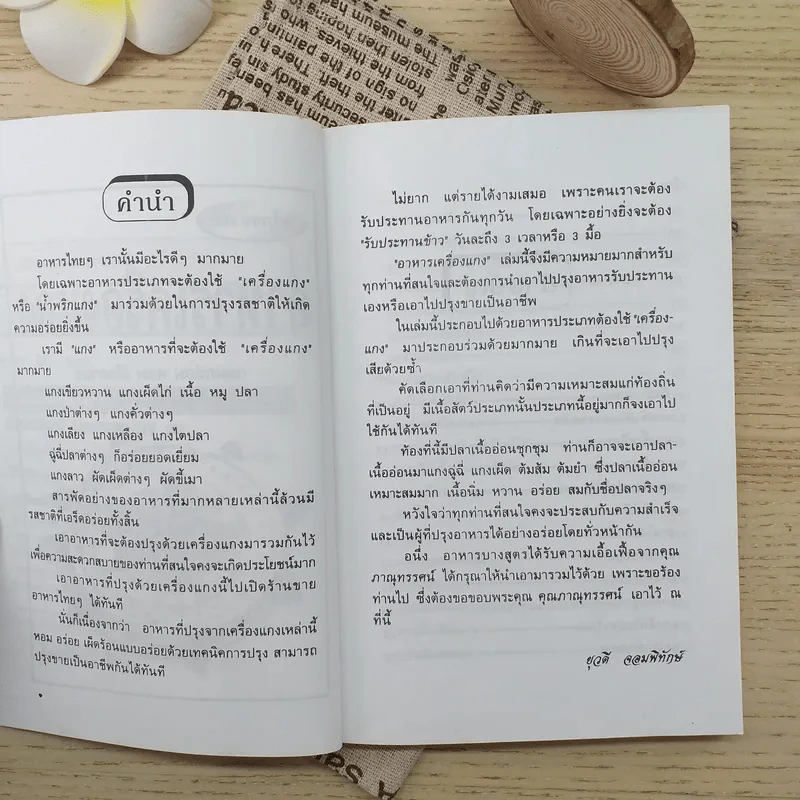 คำนำ
อาหารไทยๆ เรานั้นมีอะไรดีๆ มากมาย
โดยเฉพาะอาหารประเภทจะต้องใช้ "เครื่องแกง"
หรือ "น้ำพริกแกง" มาร่วมด้วยในการปรุงรสชาติให้เกิด
ความอร่อยยิ่งขึ้น
เรามี "แกง" หรืออาหารที่จะต้องใช้ "เครื่องแกง"
มากมาย
แกงเขียวหวาน แกงเผ็ดไก่ เนื้อ หมู ปลา
แกงป่าต่างๆ แกงคั่วต่างๆ
แกงเลียง แกงเหลือง แกงไตปลา
ฉู่ฉี่ปลาต่างๆ ก็อร่อยยอดเยี่ยม
แกงลาว ผัดเผ็ดต่างๆ ผัดขี้เมา
สารพัดอย่างของอาหารที่มากหลายเหล่านี้ล้วนมี
รสชาติที่เอร็ดอร่อยทั้งสิ้น
เอาอาหารที่จะต้องปรุงด้วยเครื่องแกงมารวมกันไว้
เพื่อความสะดวกสบายของท่านที่สนใจคงจะเกิดประโยชน์มาก
เอาอาหารที่ปรุงด้วยเครื่องแกงนี้ไปเปิดร้านขาย
อาหารไทยๆ ได้ทันที
นั่นก็เนื่องจากว่า อาหารที่ปรุงจากเครื่องแกงเหล่านี้
หอม อร่อย เผ็ดร้อนแบบอร่อยด้วยเทคนิคการปรุง สามารถ
ปรุงขายเป็นอาชีพกันได้ทันที
ไม่ยาก แต่รายได้งามเสมอ เพราะคนเราจะต้อง
รับประทานอาหารกันทุกวัน โดยเฉพาะอย่างยิ่งจะต้อง
"รับประทานข้าว" วันละถึง 3 เวลาหรือ 3 มื้อ
"อาหารเครื่องแกง" เล่มนี้จึงมีความหมายมากสำหรับ
ทุกท่านที่สนใจและต้องการนำเอาไปปรุงอาหารรับประทาน
เองหรือเอาไปปรุงขายเป็นอาชีพ
ในเล่มนี้ประกอบไปด้วยอาหารประเภทต้องใช้ "เครื่อง-
แกง" มาประกอบร่วมด้วยมากมาย เกินที่จะเอาไปปรุง
เสียด้วยซ้ำ
คัดเลือกเอาที่ท่านคิดว่ามีความเหมาะสมแก่ท้องถิ่น
ที่เป็นอยู่ มีเนื้อสัตว์ประเภทนั้นประเภทนี้อยู่มากก็จงเอาไป
ใช้กันได้ทันที
ท้องที่นี้มีปลาเนื้ออ่อนชุกชุม ท่านก็อาจจะเอาปลา-
เนื้ออ่อนมาแกงฉู่ฉี่ แกงเผ็ด ต้มส้ม ต้มยำ ซึ่งปลาเนื้ออ่อน
เหมาะสมมาก เนื้อนิ่ม หวาน อร่อย สมกับชื่อปลาจริงๆ
หวังใจว่าทุกท่านที่สนใจคงจะประสบกับความสำเร็จ
และเป็นผู้ที่ปรุงอาหารได้อย่างอร่อยโดยทั่วหน้ากัน
อนึ่ง อาหารบางสูตรได้รับความเอื้อเฟื้อจากคุณ
ภาณุทรรศน์ ได้กรุณาให้นำเอามารวมไว้ด้วย เพราะขอร้อง
ท่านไป ซึ่งต้องขอขอบพระคุณ คุณภาณุทรรศน์ เอาไว้ ณ
ที่นี้
ยุวดี จอมพิทักษ์